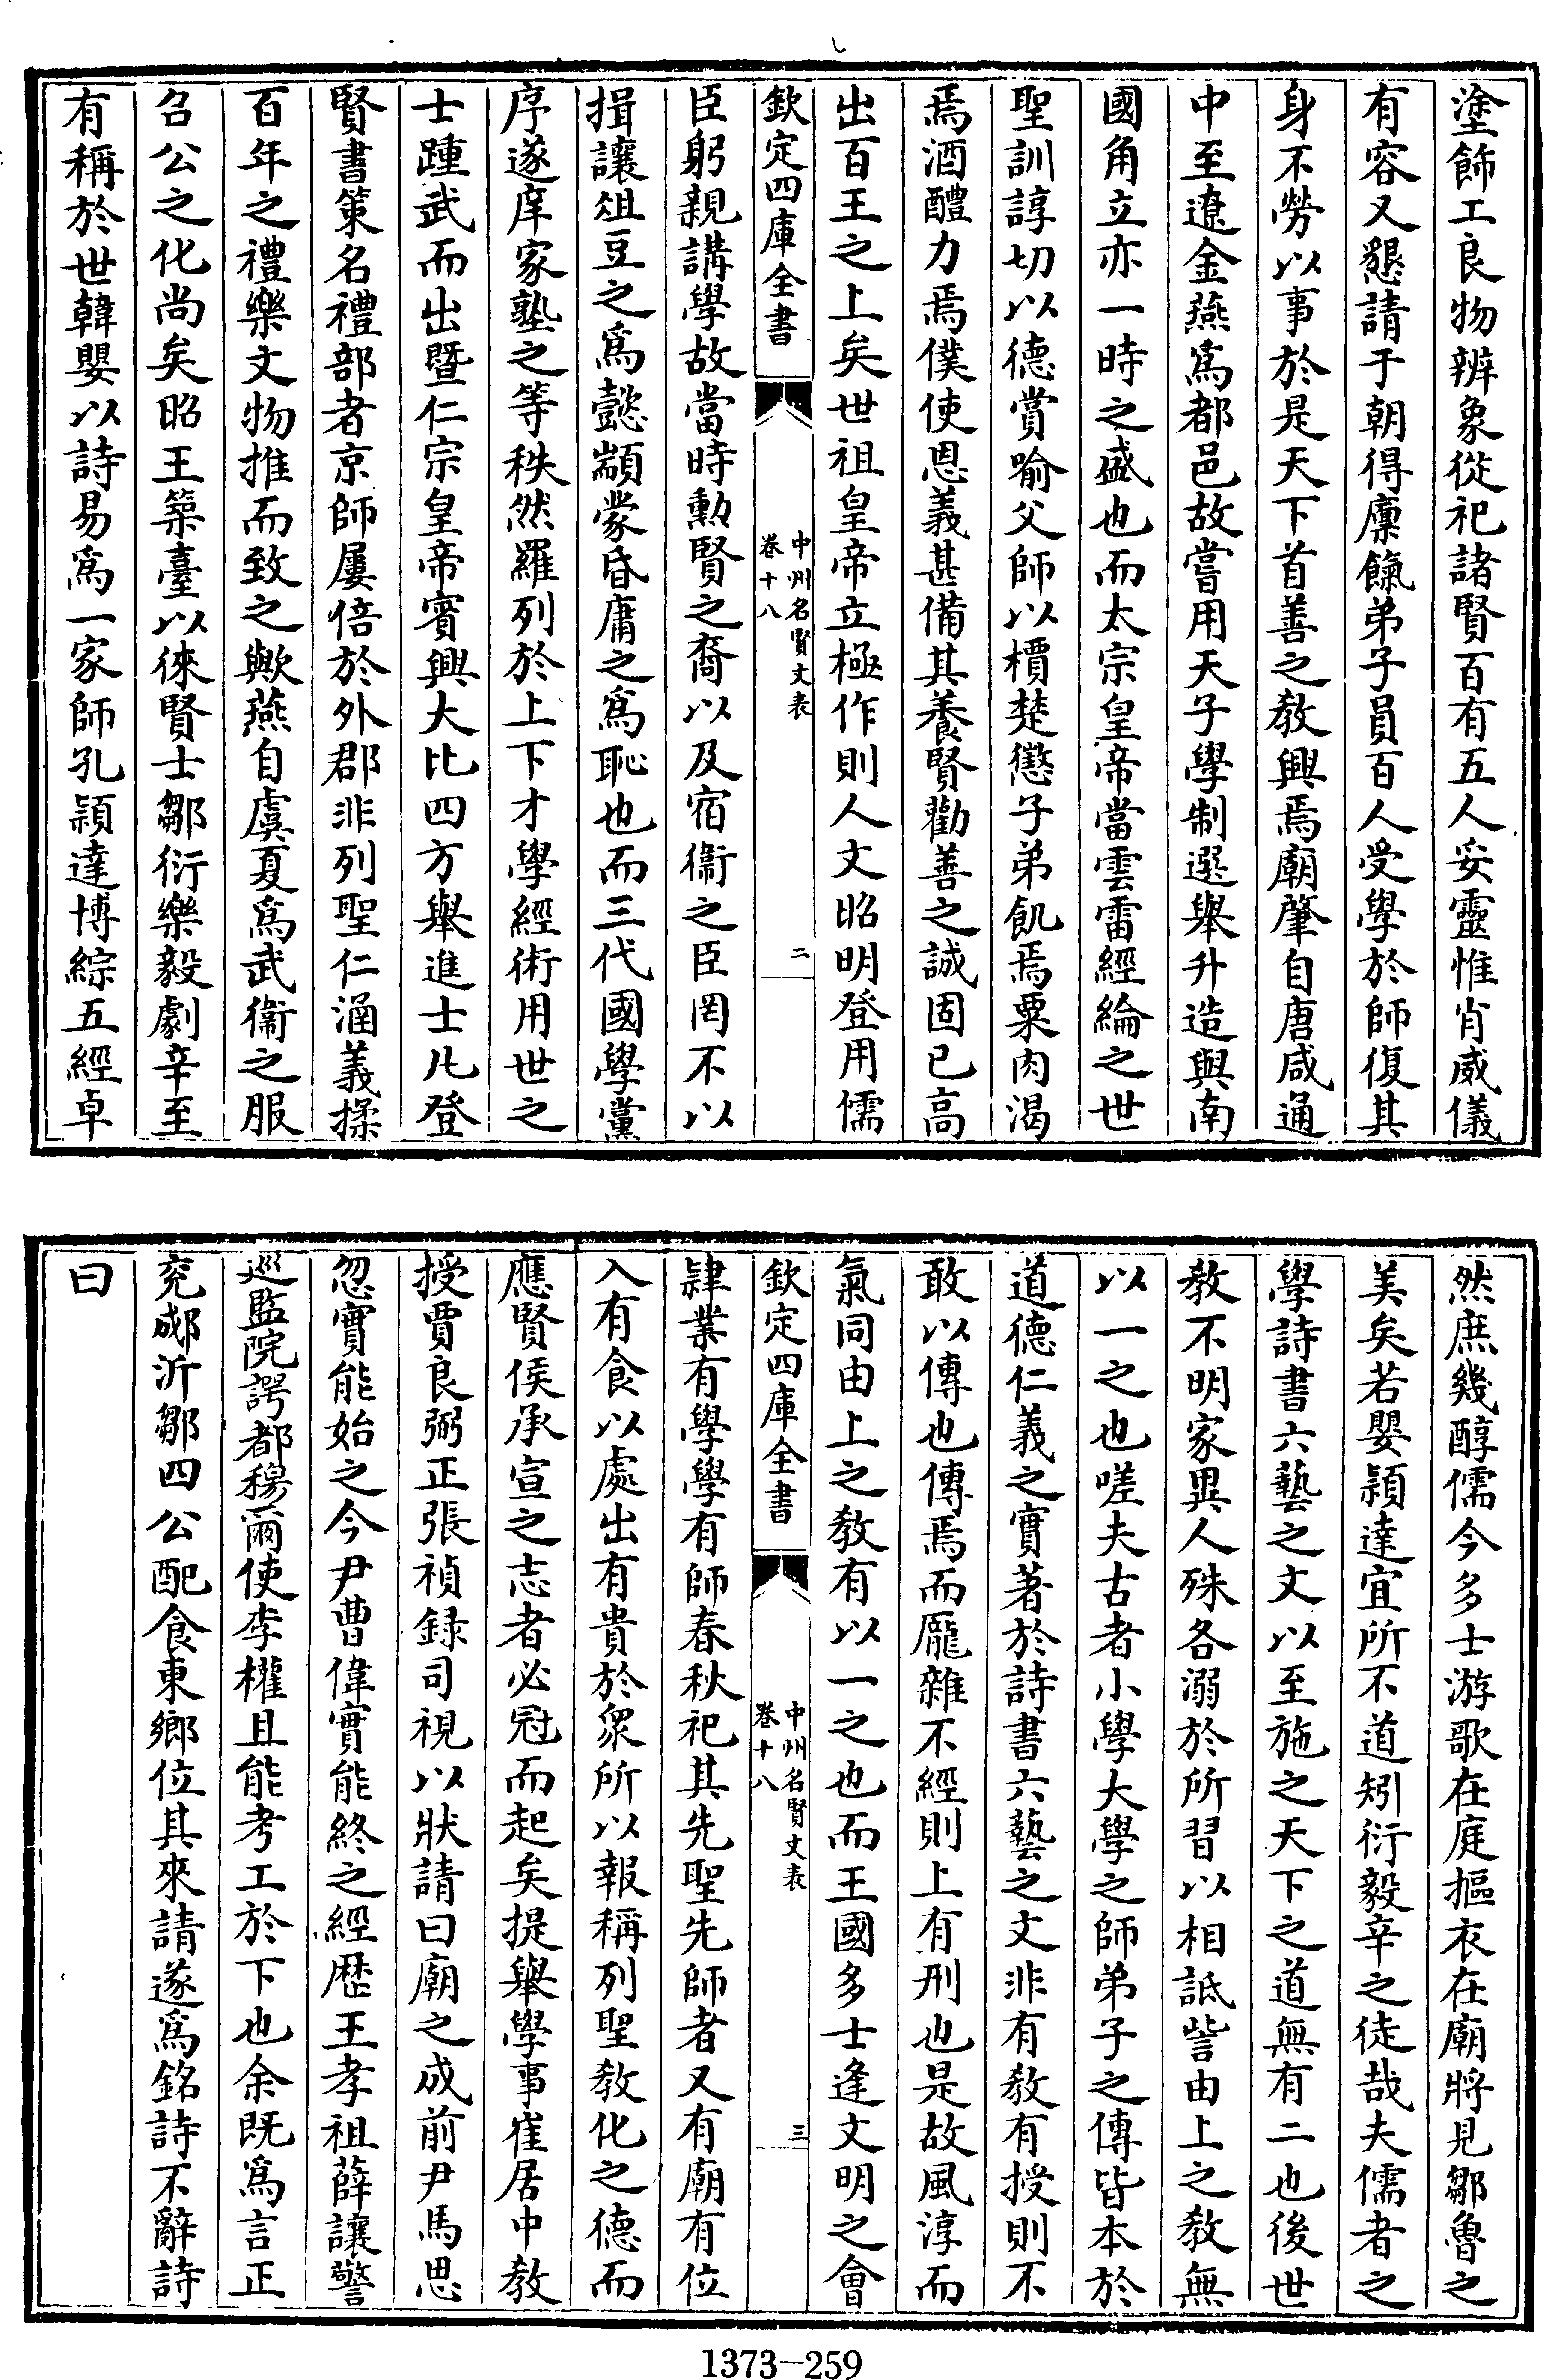 塗飾工良物辨象從祀諸賢百有五人妥靈惟肖威儀
有容又懇請于朝得廩餼弟子員百人受學於師復其
身不勞以事於是天下首善之教興焉廟肇自唐咸通
中至遼金燕為都邑故嘗用天子學制選舉升造與南
國角立亦一時之盛也而太宗皇帝當雲雷經綸之世
聖訓諄切以德賞喻父師以檟楚懲子弟飢焉粟肉渴
焉酒醴力焉僕使恩義甚備其養賢勸善之誠固已高
出百王之上矣世祖皇帝立極作則人文昭明登用儒
欽定四庫全書
中州名賢文表
卷十八
二
臣躬親講學故當時勲賢之裔以及宿衞之臣罔不以
揖讓俎豆之為懿顓蒙昏庸之為恥也而三代國學黨
序遂庠家塾之等秩然羅列於上下才學經術用世之
士踵武而出暨仁宗皇帝賓興大比四方舉進士凡登
賢書策名禮部者京師屢倍於外郡非列聖仁涵義揉
百年之禮樂文物推而致之歟燕自虞夏為武衞之服
召公之化尚矣昭王築臺以徠賢士鄒衍樂毅劇辛至
有稱於世韓嬰以詩易為一家師孔潁達博綜五經卓
然庶幾醇儒今多士游歌在庭摳衣在廟將見鄒魯之
美矣若嬰潁達宜所不道矧衍毅辛之徒哉夫儒者之
學詩書六藝之文以至施之天下之道無有二也後世
教不明家異人殊各溺於所習以相詆訾由上之教無
以一之也嗟夫古者小學大學之師弟子之傳皆本於
道德仁義之實著於詩書六藝之文非有教有授則不
敢以傳也傳焉而厖雜不經則上有刑也是故風淳而
氣同由上之教有以一之也而王國多士逢文明之會
欽定四庫全書
中州名賢文表
卷十八
三
肄業有學學有師春秋祀其先聖先師者又有廟有位
入有食以處出有貴於衆所以報稱列聖教化之德而
應賢侯承宣之志者必冠而起矣提舉學事崔居中教
授賈良弼正張禎録司視以狀請曰廟之成前尹馬思
忽實能始之今尹曹偉實能終之經歴王孝祖薛讓警
巡監院諤都穆爾使李權且能考工於下也余既為言正
兖郕沂鄒四公配食東鄉位其來請遂為銘詩不辭詩
曰
1373—259